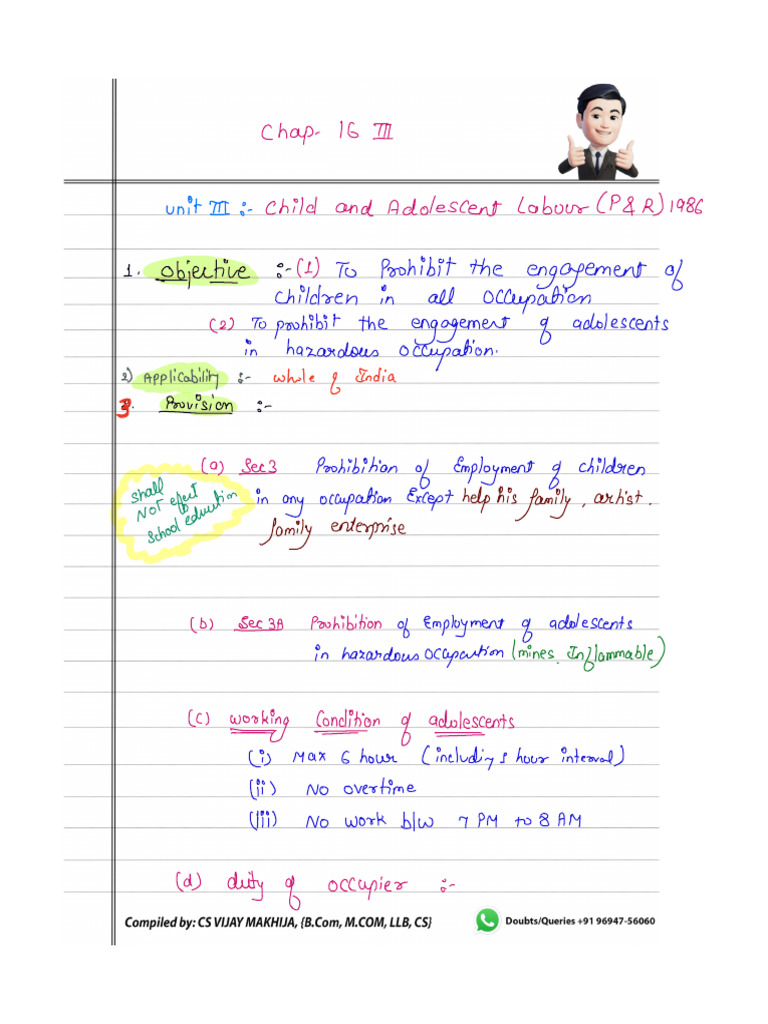 Chap- 16 III
unit III :- Child and Adolescent Labour (P & R) 1986
1. Objective :- (1) To Prohibit the engagement of
children in all occupation
(2) To prohibit the engagement of adolescents
in hazardous occupation.
2) Applicability :- whole of India
3. Provision :-
(a) Sec 3 Prohibition of Employment of children
in any occupation Except help his family, artist.
family enterprise
shall
NOT efect
school education
(b) Sec 3A Prohibition of Employment of adolescents
in hazardous occupation (mines, Inflammable)
(c) working Condition of adolescents
(i) Max 6 hour (includig 1 hour interval)
(ii) No overtime
(iii) No work b/w 7 PM to 8 AM
(d) duty of occupier :-
Compiled by: CS VIJAY MAKHIJA, {B.Com, M.COM, LLB, CS}
Doubts/Queries +91 96947-56060